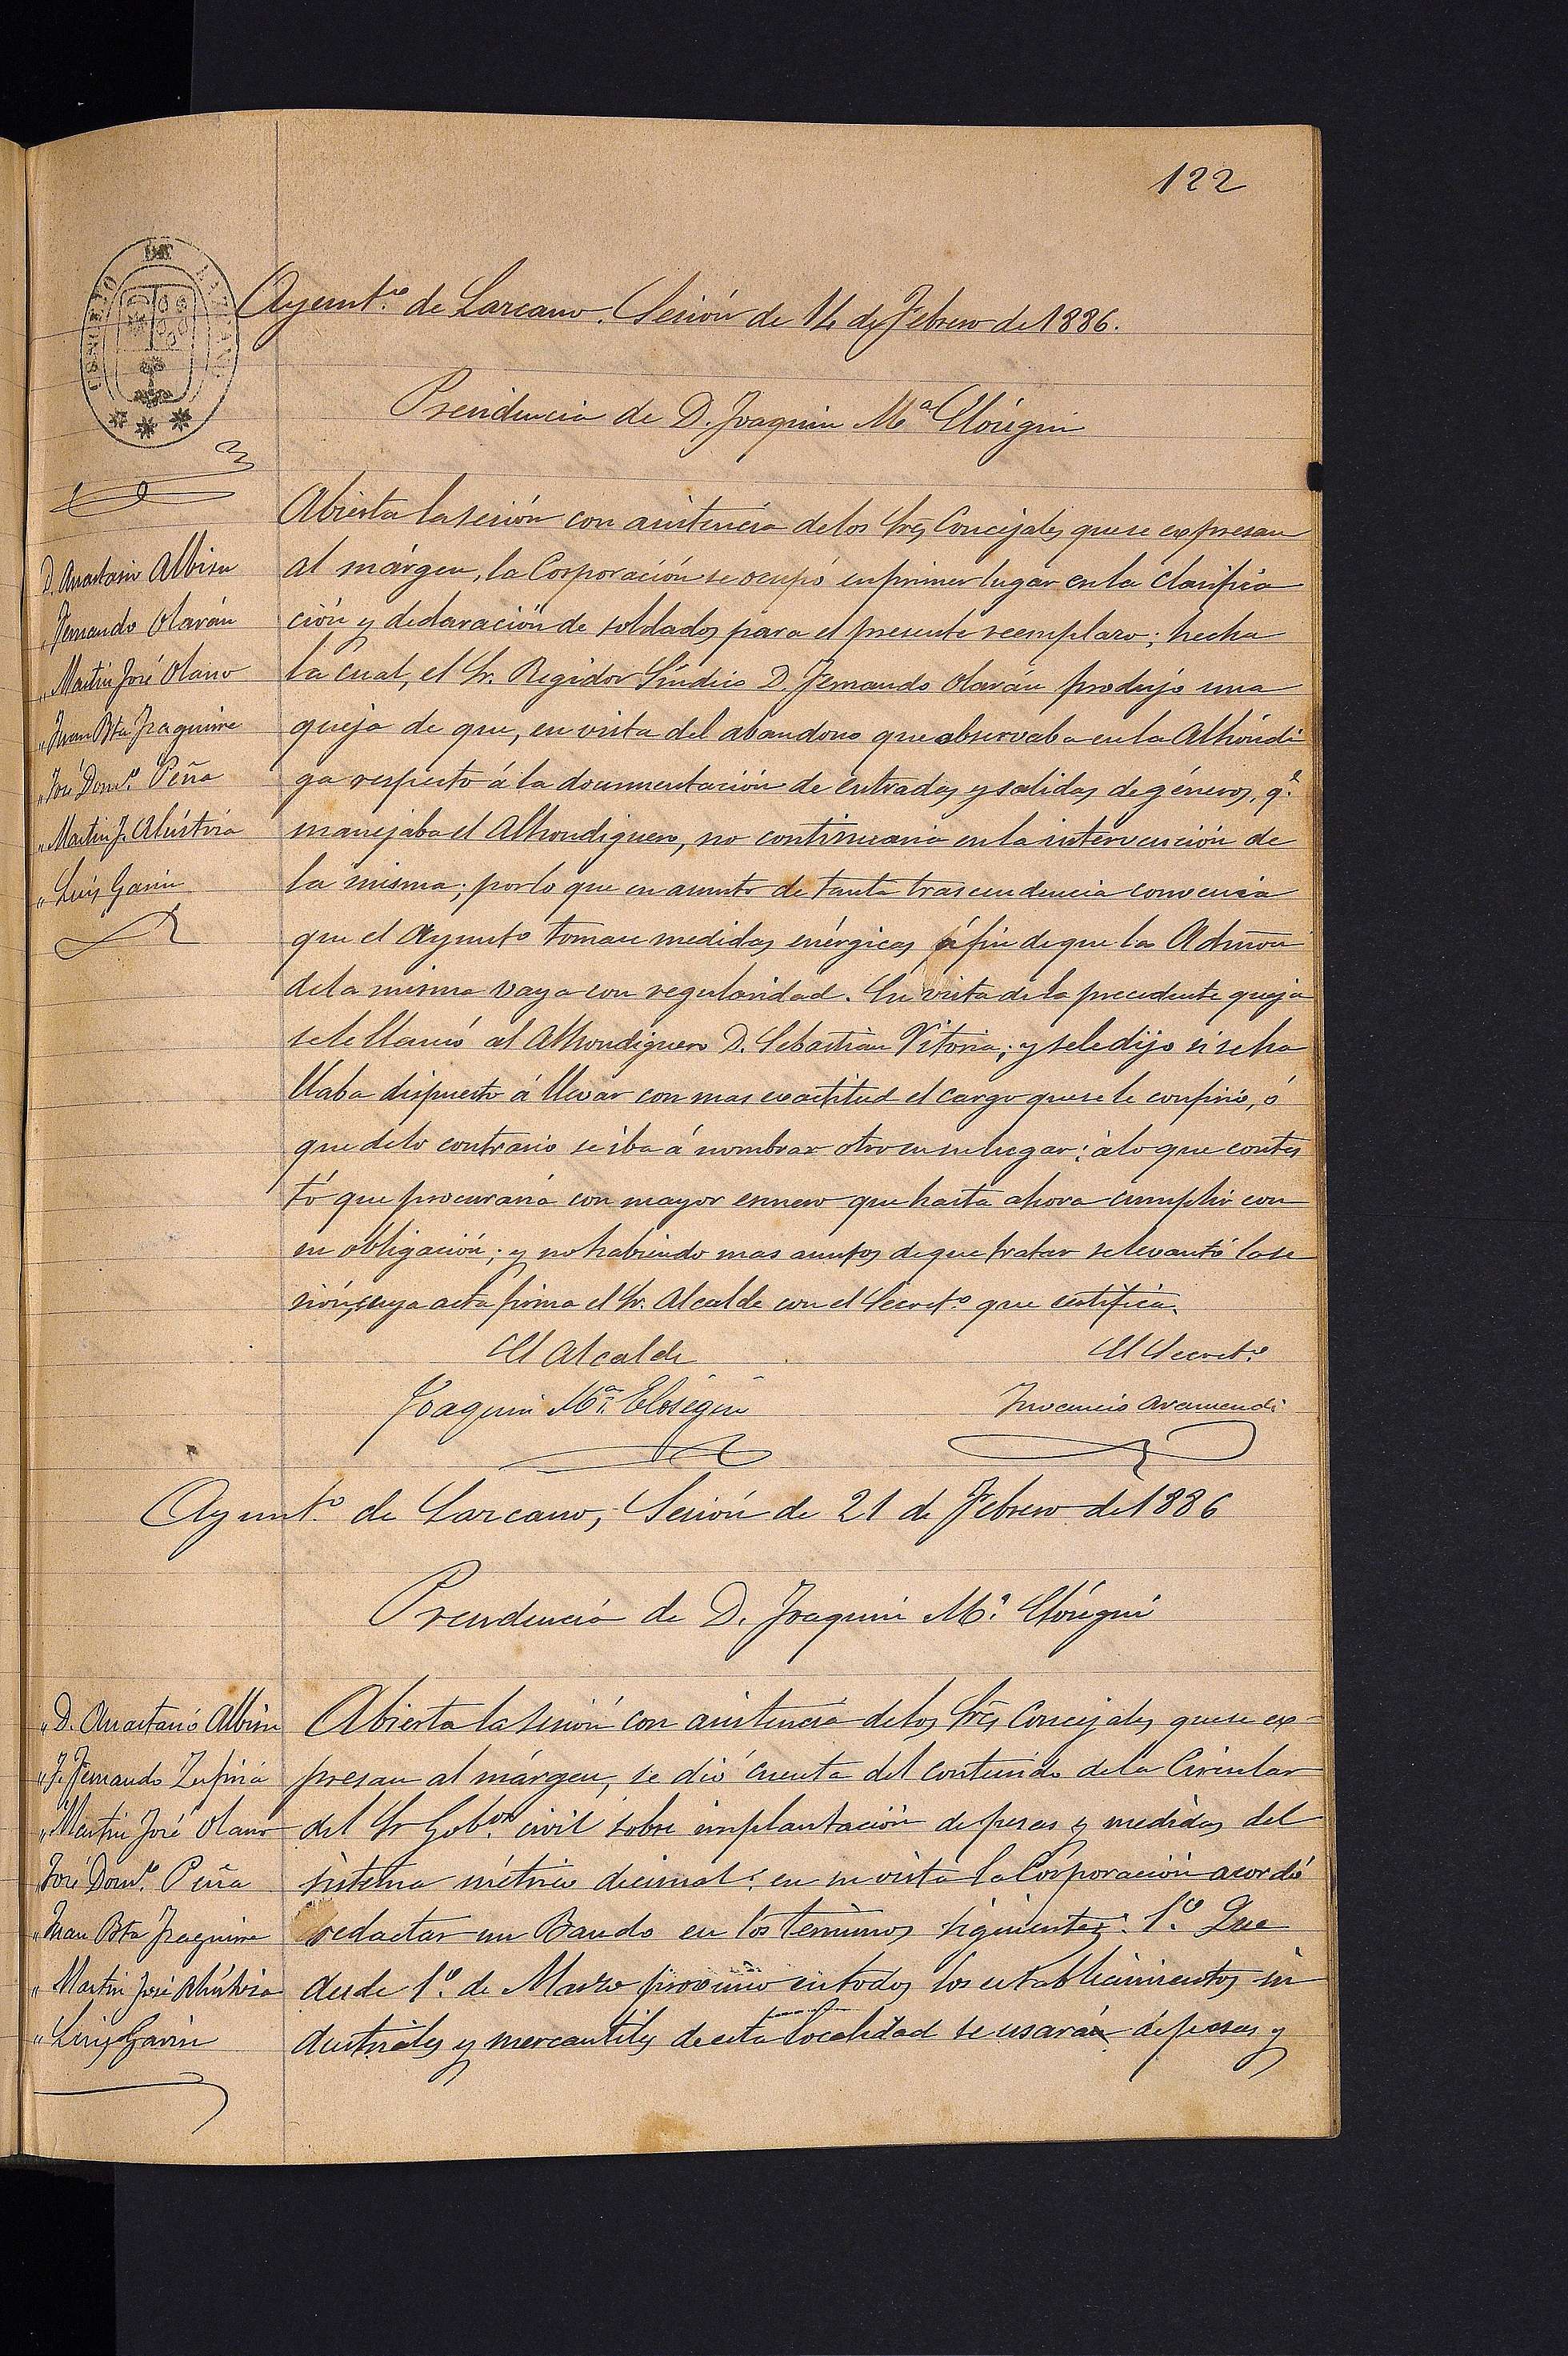 122
CONCEJO DE
Ayunt.º de Lazcano. Sesión de 14 de Febrero de 1886.
Presidencia de D. Joaquin Mª Elósegui
D. Anastasio Albisu
" Fernando Olarán
" Martin José Olano
" Juan Bta Izaguirre
" José Dom.º Peña
" Martin J. Alústiza
" Luis Garin
Abierta la sesión con asistencia de los Srs Concejales que se expresan
al márgen, la Corporación se ocupó en primer lugar en la clasifica
ción y declaración de soldados para el presente reemplazo; hecha
la cual, el Sr. Regidor Síndico D. Fernando Olarán produjo una
queja de que, en vista del abandono que observaba en la Alhóndi
ga respecto á la documentación de entradas y salidas de géneros, q.e
manejaba el Alhondiguero, no continuaria en la intervención de
la misma; por lo que en asunto de tanta trascendencia convenia
que el Ayunto tomase medidas enérgicas á fin de que la Admon
de la misma vaya con regularidad. En vista de la precedente queja
se le llamó al Alhondiguero D. Sebastian Vitoria; y se le dijo si se ha
llaba dispuesto á llevar con mas exactitud el cargo que se le confirió, ó
que de lo contrario se iba á nombrar otro en su lugar; á lo que contes
tó que procuraria con mayor esmero que hasta ahora cumplir con
su obligación; y no habiendo mas asuntos de que tratar se levantó la se
sión, cuya acta firma el Sr. Alcalde con el Secret.º que certifica.
El Alcalde
El Secret.º
Joaquin Mª. Elósegui
Inocencio Aramendi
Ayunt.º de Lazcano, Sesión de 21 de Febrero de 1886
Presidencia de D. Joaquin Mª. Elósegui
" D. Anastasio Albisu
" J. Fernando Zufiria
" Martin José Olano
" José Dom.º Peña
" Juan Bta Izaguirre
" Martin José Alústiza
" Luis Garin
Abierta la sesión con asistencia de los Srs Concejales que se ex-
presan al márgen, se dió cuenta del contenido de la Circular
del Sr Gob.or civil sobre implantación de pesas y medidas del
sistema métrico decimal: en su vista la Corporación acordó
redactar un Bando en los términos siguientes: 1.º Que
desde 1.º de Marzo proximo en todos los establecimientos in
dustriales y mercantiles de esta localidad se usarán de pesas y